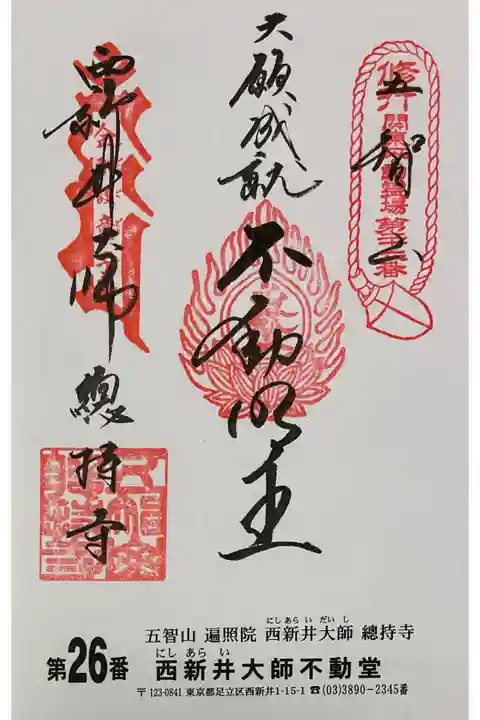 五智山
大願成就
不動明王
西新井大師 總持寺
五智山 遍照院 西新井大師 總持寺
にしあらい だいし
第26番 西新井大師不動堂
にし あら い
〒123-0841 東京都足立区西新井1-15-1 ☎(03)3890-2345番